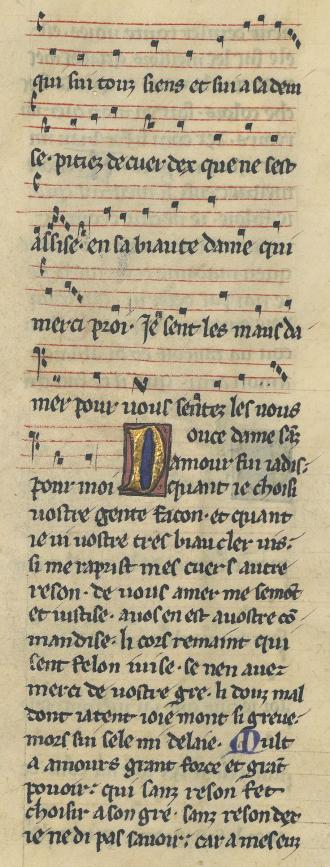 qui sui touz siens et sui a sa dem
se · pitiez de cuer dex que ne sest
assise · en sa biaute dame qui
merci proi · Je sent les maus da
mer pour uous sentez les uous
pour moi
Douce dame sãz
amour fui iadis ·
quant ie choisi
uostre gente facon · et quant
ie ui uostre tres biau cler uis ·
si me raprist mes cuers autre
reson · de uous amer me semõt
et iustise · a uos en est a uostre cõ
mandise · li cors remaint qui
sent felon iuise · se nen auez
merci de uostre gre · li douz mal
dont iatent ioie mont si greue ·
mors sui sele mi delaie · Mult
a amours grant force et grãt
pouoir · qui sanz reson fet
choisir a son gre · sanz reson dex
ie ne di pas sauoir · car a mes eus